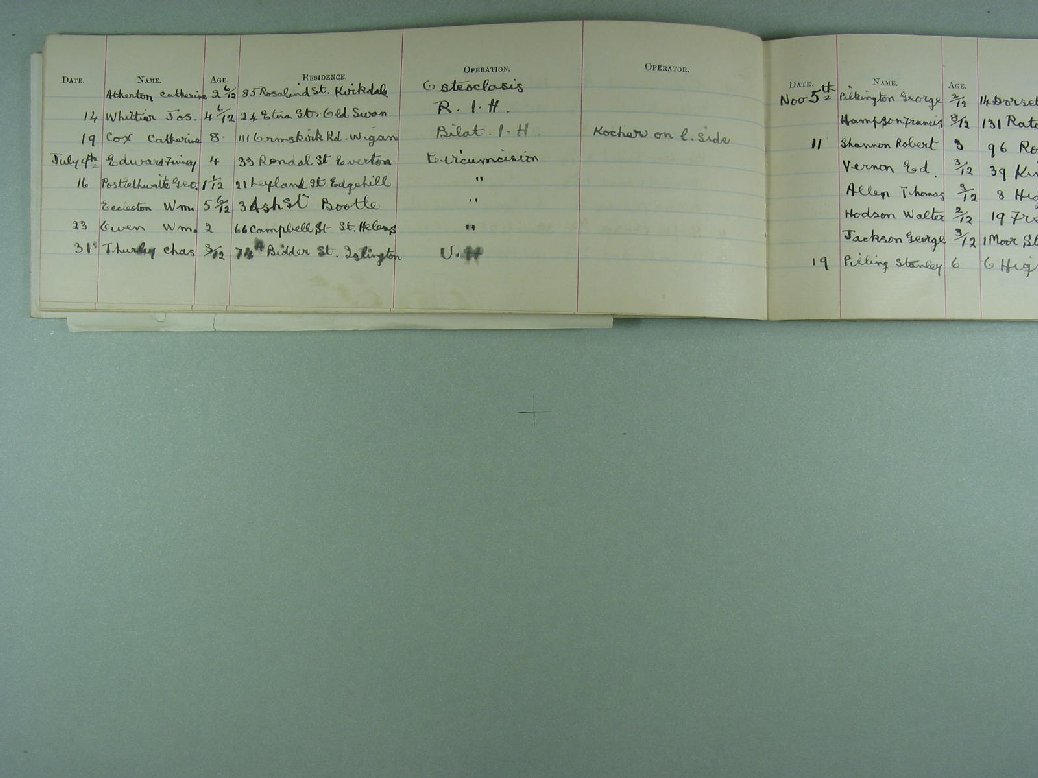 DATE. NAME. AGE. RESIDENCE. OPERATION. OPERATOR.
Atherton Catherine 2 6/12 85 Rosalind St. Kirkdale Osteoclasis
14 Whittier Jos. 4 6/12 24 Elvia St. Old Swan R. I. H.
19 Cox Catherine 8 111 Ormskirk Rd. Wigan Bilat. I. H Kocher on L. side
July 9th Edward 4 33 Rendal St Everton Circumcision
16 Postlethwaite Geo. 1 1/12 21 Leyland St Edgehill "
Eccleston Wm. 5 6/12 3 Ash St Bootle "
23 Owen Wm. 2 66 Campbell St St. Helens "
31st Thurley Chas 3/12 74 Bidder St. Islington U. H
DATE. NAME. AGE.
Nov 5th Pilkington George 3/12 14 Dorset
Hampson Francis 3/12 131 Rat
11 Shannon Robert 3 96 Ro
Vernon Ed. 3/12 39 Ki
Allen Thomas 3/12 8 Hig
Hodson Walter 3/12 19 Fr
Jackson George 3/12 1 Moor St
19 Pilling Stanley 6 6 Hig